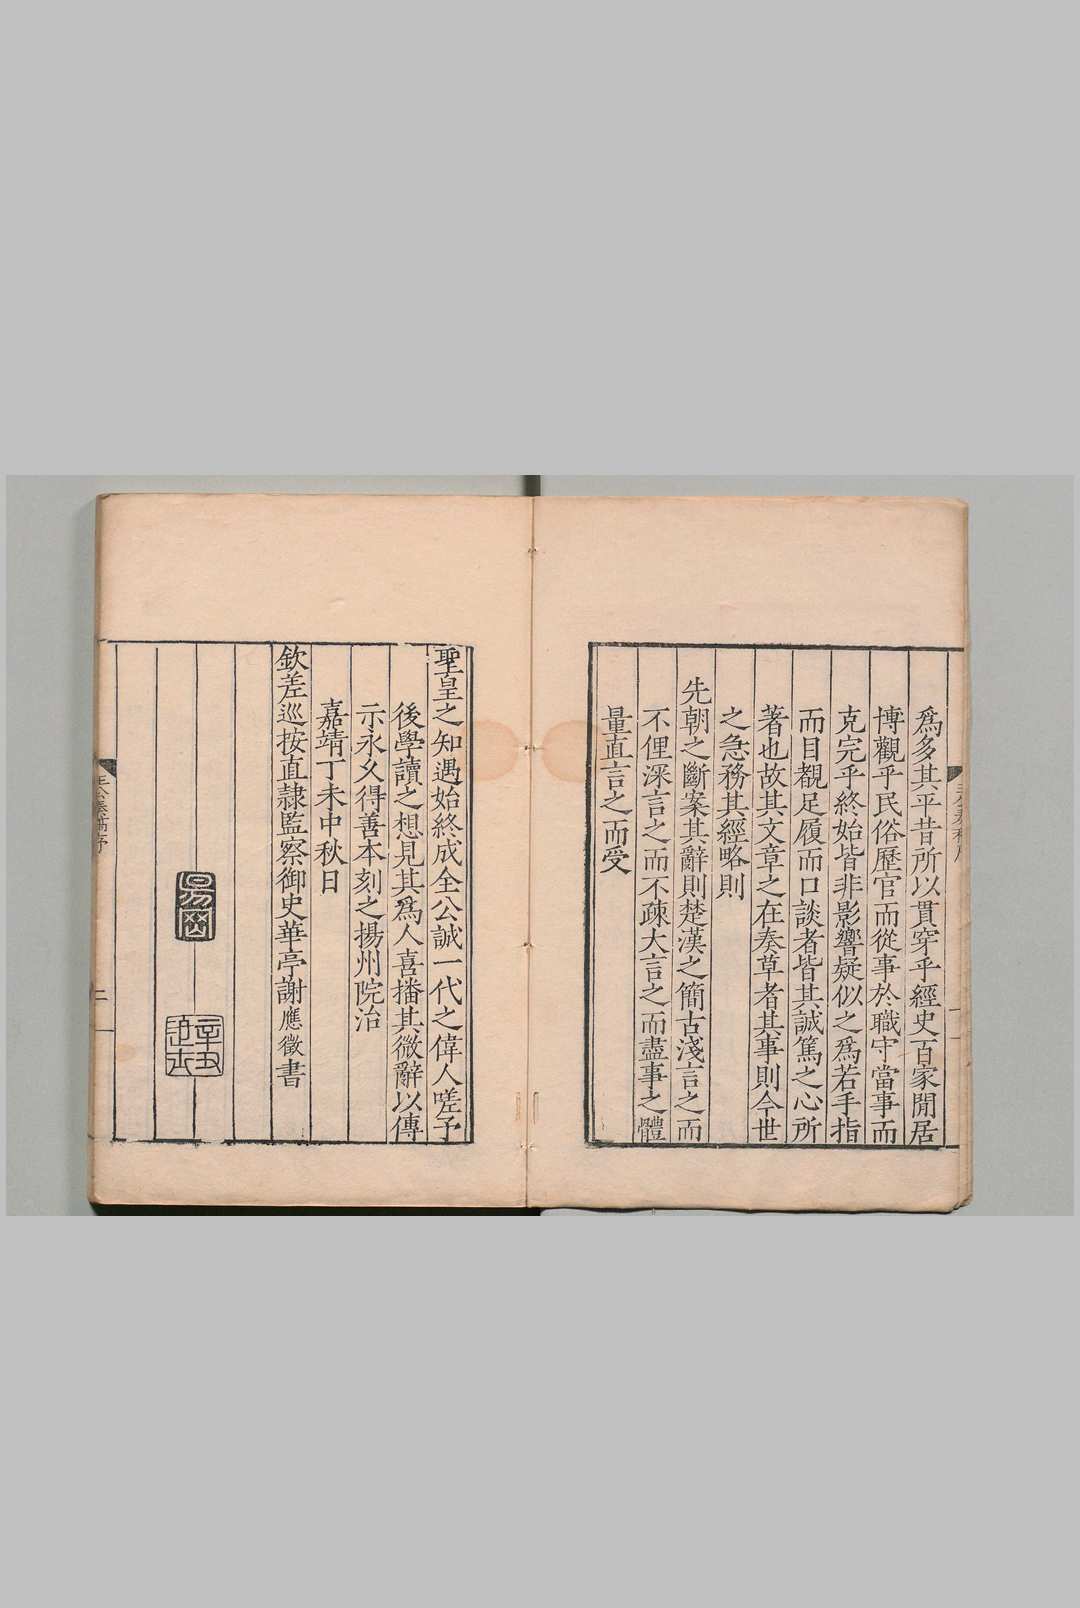 爲多其平昔所以貫穿乎經史百家閒居
博觀乎民俗歷官而從事於職守當事而
克完乎終始皆非影響疑似之爲若手指
而目覩足履而口談者皆其誠篤之心所
著也故其文章之在奏草者其事則今世
之急務其經略則
先朝之斷案其辭則楚漢之簡古淺言之而
不俚深言之而不疎大言之而盡事之體
量直言之而受
聖皇之知遇始終成全公誠一代之偉人嗟予
後學讀之想見其爲人喜播其微辭以傳
示永久得善本刻之揚州院治
嘉靖丁未中秋日
欽差巡按直隸監察御史華亭謝應徵書
王公奏稿序
二